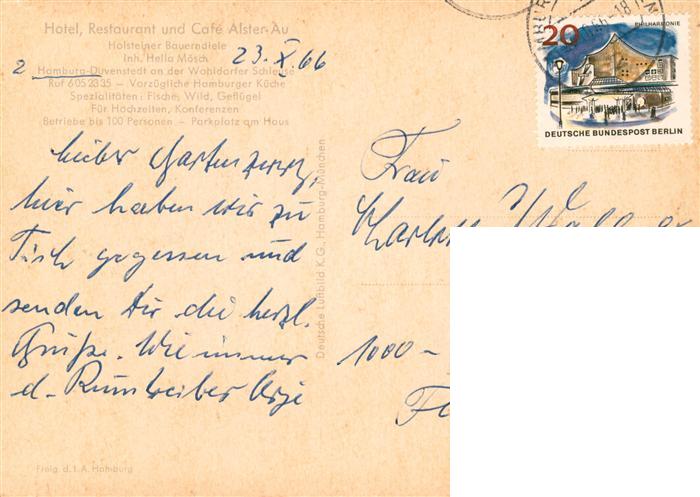 Hotel, Restaurant und Café Alster-Au
Holsteiner Bauerndiele
Inh. Hella Mösch
23. X. 66
2 Hamburg-Duvenstedt an der Wohldorfer Schleuse
Ruf 605 23 35 – Vorzügliche Hamburger Küche
Spezialitäten: Fische, Wild, Geflügel
Für Hochzeiten, Konferenzen
Betriebe bis 100 Personen – Parkplatz am Haus
lieber
hier haben wir zu
Tisch gegessen und
senden Dir die herzl.
Grüße. Wie immer
d. Rumtreiber
Freig. d. L. A. Hamburg
Deutsche Luftbild K.G., Hamburg-München
20
PHILHARMONIE
DEUTSCHE BUNDESPOST BERLIN
Frau
1000 –